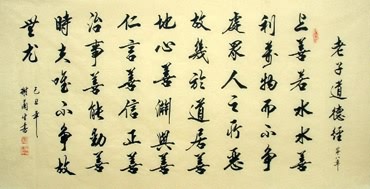 老子道德經 第八章
上善若水水善
利萬物而不爭
處眾人之所惡
故幾於道居善
地心善淵與善
仁言善信正善
治事善能動善
時夫唯不爭故
無尤
己丑年